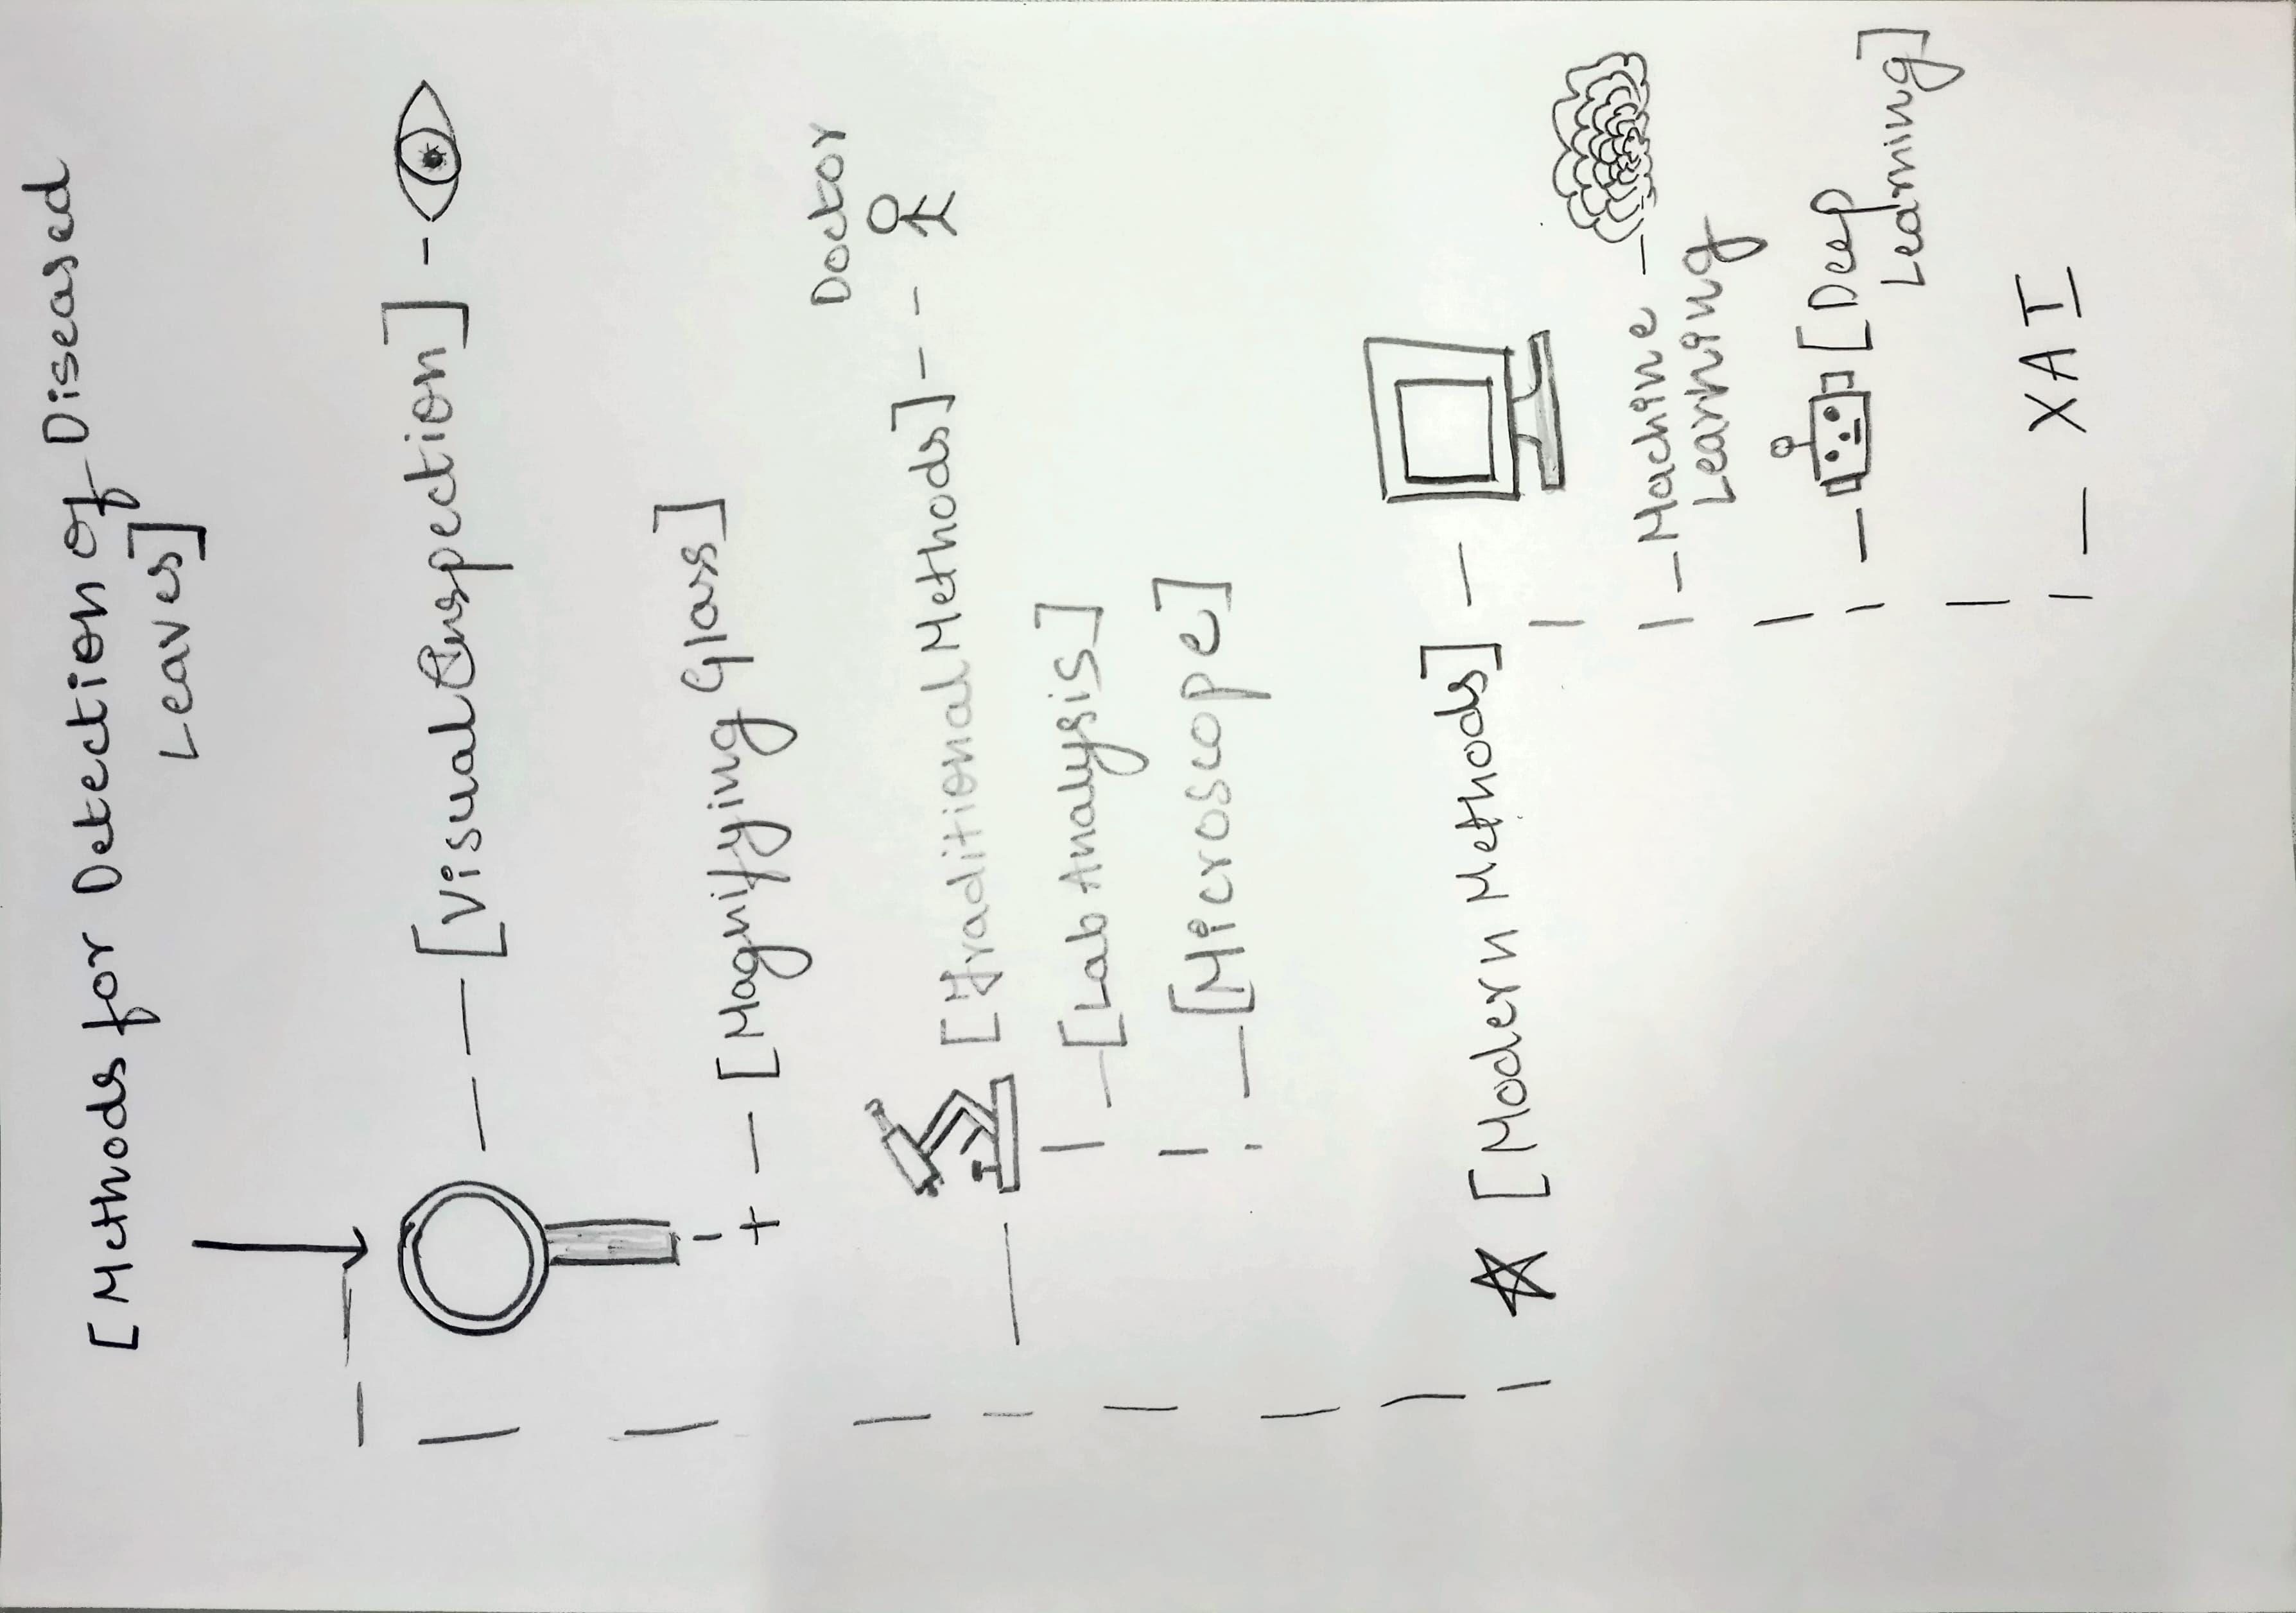 [Methods for Detection of Diseased
Leaves]
[Visual Inspection]
+ - [Magnifying Glass]
Doctor
[Traditional Methods]
[Lab Analysis]
[Microscope]
[Modern Methods]
Machine
Learning
[Deep
Learning]
XAI